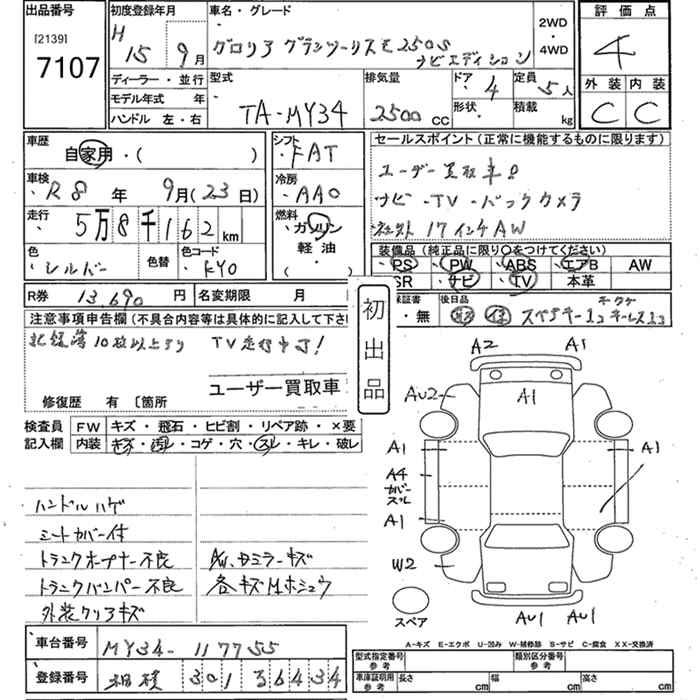 出品番号
[2139]
7107
初度登録年月
H 15年 9月
車名・グレード
グロリア グランツーリスモ 250S
ナビエディション
2WD
・
4WD
評価点
4
外装 内装
C C
ディーラー・並行
モデル年式 年
ハンドル 左・右
型式
TA-MY34
排気量
2500 CC
ドア
・4
形状
・
定員
・5人
積載
kg
車歴
自家用・( )
車検
・R8年 9月(23日)
走行
・5万8千162km
色
・シルバー
色替
色コード
・KY0
シフト
・FAT
冷房
・AAC
燃料
ガソリン
軽油
・
セールスポイント(正常に機能するものに限ります)
ユーザー買取車
ナビ・TV・バックカメラ
社外17インチAW
装備品(純正品に限り○をつけてください)
PS ・PW ・ABS ・エアB AW
SR ・ナビ ・TV ・本革
R券 13,690円
名変期限 月
保証書
・無
後日品
スペアキー1コ キーレス1コ
初出品
注意事項申告欄(不具合内容等は具体的に記入して下さ
記録簿10枚以上あり TV走行中可!
ユーザー買取車
修復歴 有 〔箇所
検査員
記入欄
FW キズ・飛石・ヒビ割・リペア跡・×要
内装 キズ・汚レ・コゲ・穴・スレ・キレ・破レ
ハンドルハゲ
シートカバー付
トランクオープナー不良
トランクダンパー不良
外装クリアキズ
AW、ドミラーキズ
各キズ有ホシュウ
A2 A1
AU2 A1
A1 A1
A4
カバー
スレ
A1
W2
AU1 AU1
スペア
A-キズ E-エクボ U-凹み W-補修跡 S-サビ C-腐食 XX-交換済
車台番号 MY34-117755
登録番号 相模 301 　36434
型式指定番号
参考
類別区分番号
参考
車庫証明用
参考
長さ cm
幅 cm
高さ cm